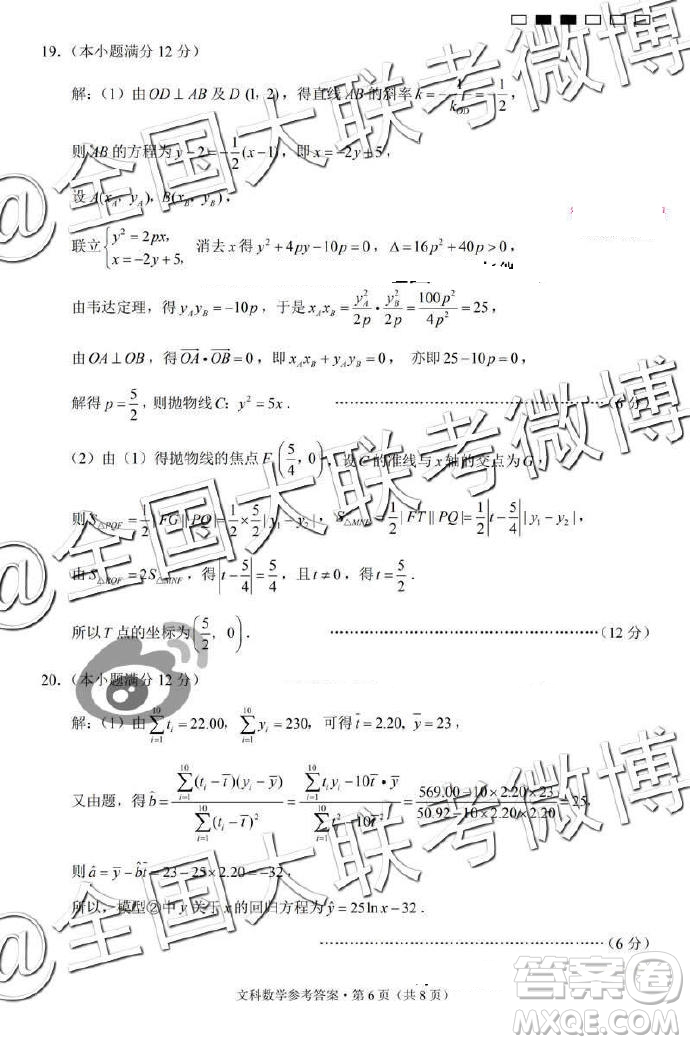 19．（本小题满分 12 分）
解：（1）由 OD⊥AB 及 D (1, 2)，得直线 AB 的斜率 k=-1/k_OD=-1/2，
则 AB 的方程为 y-2=-1/2(x-1)，即 x=-2y+5，
设 A(x_A, y_A), B(x_B, y_B)，
联立{y²=2px, x=-2y+5, 消去 x 得 y²+4py-10p=0，Δ=16p²+40p>0，
由韦达定理，得 y_A y_B=-10p，于是 x_A x_B=y_A²/2p•y_B²/2p=100p²/4p²=25，
由 OA⊥OB，得 OA•OB=0，即 x_A x_B+y_A y_B=0， 亦即 25-10p=0，
解得 p=5/2，则抛物线 C：y²=5x． （6 分）
（2）由（1）得抛物线的焦点 F(5/4, 0)，设 C 的准线与 x 轴的交点为 G，
则 S_△PQF=1/2|FG||PQ|=1/2×5/2|y₁-y₂|，S_△MNF=1/2|FT||PQ|=1/2|t-5/4||y₁-y₂|，
由 S_△PQF=2S_△MNF，得|t-5/4|=5/4，且 t≠0，得 t=5/2．
所以 T 点的坐标为(5/2, 0)． （12 分）
20．（本小题满分 12 分）
解：（1）由∑_{i=1}^{10} t_i=22.00，∑_{i=1}^{10} y_i=230，可得 t̄=2.20, ȳ=23，
又由题，得 b̂=∑_{i=1}^{10}(t_i-t̄)(y_i-ȳ)/∑_{i=1}^{10}(t_i-t̄)²=∑_{i=1}^{10}t_i y_i-10t̄•ȳ/∑_{i=1}^{10}t_i²-10t̄²=569.00-10×2.20×23/50.92-10×2.20×2.20=25，
则 â=ȳ-b̂t̄=23-25×2.20=-32，
所以，模型②中 y 关于 x 的回归方程为 ŷ=25ln x-32．
（6 分）
文科数学参考答案·第 6 页（共 8 页）
@全国大联考微博
答案卷
MXQE.COM